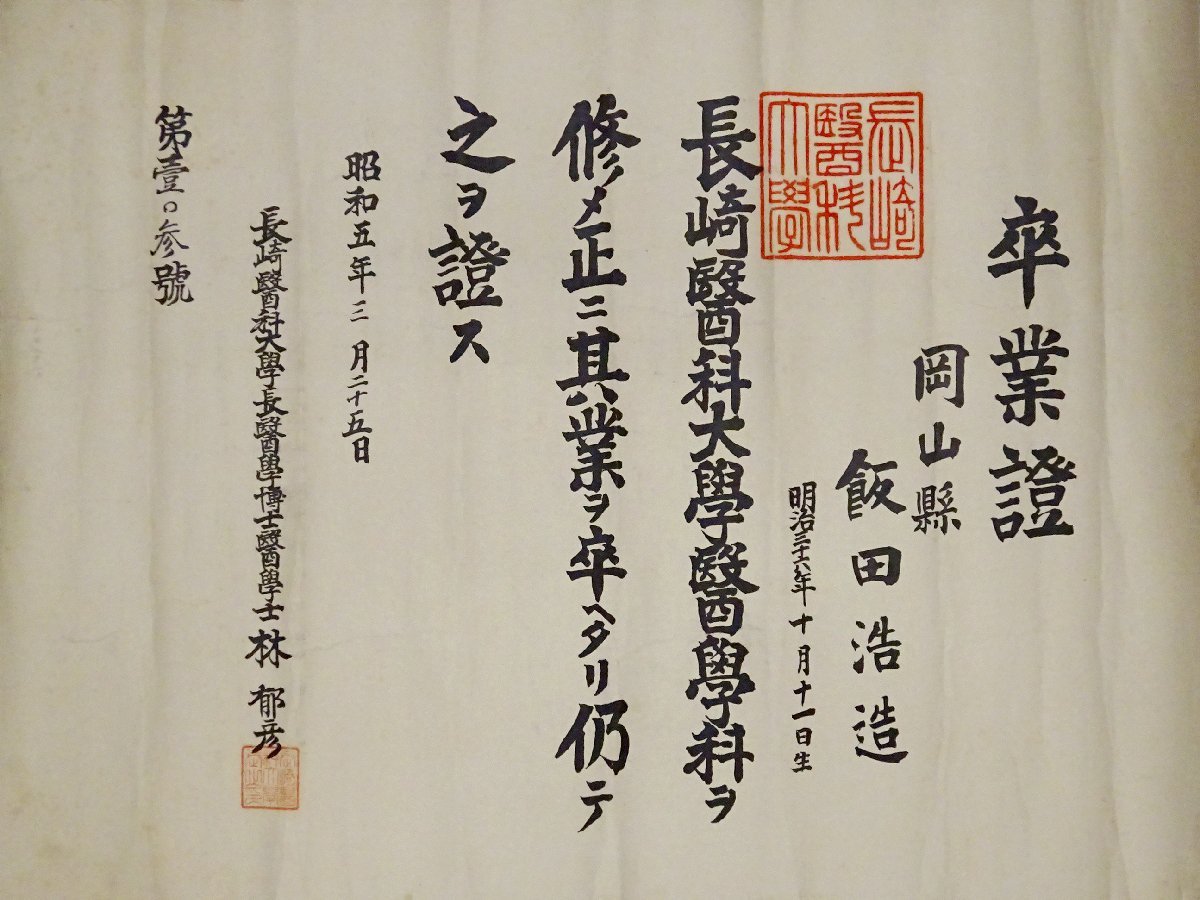 卒業證
岡山縣
飯田浩造
明治三十六年十月十一日生
長崎醫科大學
長崎醫科大學醫學科ヲ
修メ正ニ其業ヲ卒ヘタリ仍テ
之ヲ證ス
昭和五年三月二十五日
長崎醫科大學長醫學博士醫學士林郁彦
第壹〇參號